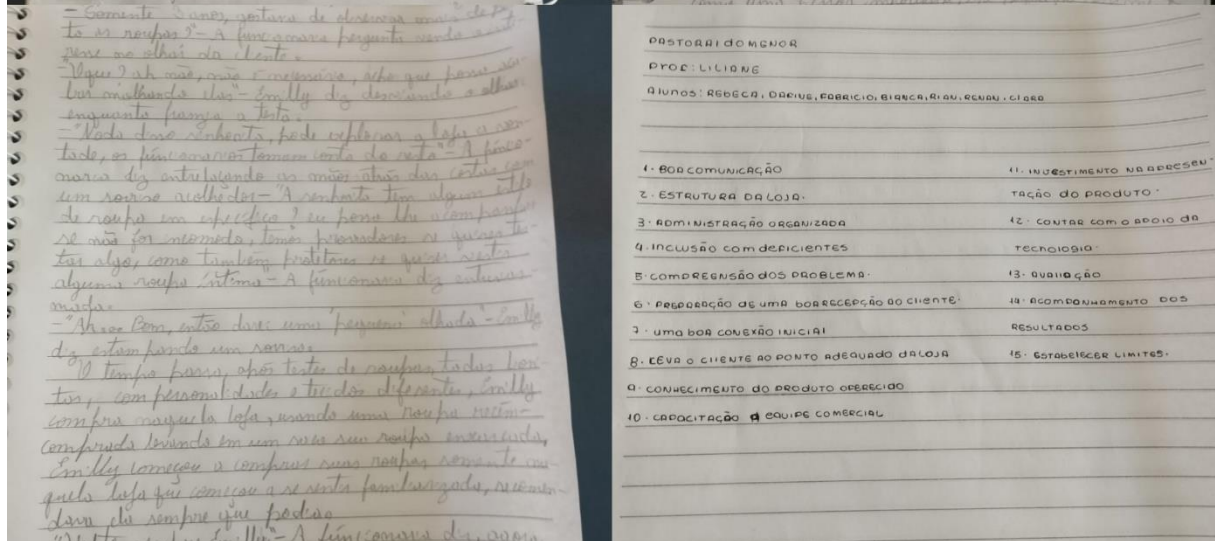 - Somente 3 anos, gostava de observar mais de
to as roupas?"- A funcionaria pergunta vendo a
rene no olhar da cliente.
-"Oque? ah não, não é necessário, acho que posso aca
bar molhando elas"- Emilly diz desviando o olhar
enquanto franze a testa.
-"Nada disso senhorita, pode explorar a loja a von-
tade, os funcionarios tomam conta do resto"- A funcio-
naria diz entrelaçando as mãos atrás das costas com
um sorriso acolhedor- "A senhorita tem algum estilo
de roupa em especifico? eu posso lhe acompanhar
se não for incomodo, temos provadores se quiser tes-
tar algo, como também protetores se quiser vestir
alguma roupa íntima"- A funcionaria diz entusias-
mada.
-"Ah... Bom, então darei uma 'pequena' olhada"- Emilly
diz estampando um sorriso.
O tempo passa, após testes de roupas, todas bon-
tas, com personalidades e tecidos diferentes, Emilly
compra naquela loja, usando uma roupa recém-
comprada levando em um saco sua roupa encharcada,
Emilly começou a comprar suas roupas somente na-
quela loja que começou a se sentir familiarizada, recomen-
dava ela sempre que podia.
Emilly"- A funcionaria diz, agora
PASTORAL DO MENOR
PROF: LILIANE
ALUNOS: REBECA, DARINE, FABRICIO, BIANCA, RENAN, CLARA
1. BOA COMUNICAÇÃO
2. ESTRUTURA DA LOJA.
3. ADMINISTRAÇÃO ORGANIZADA
4. INCLUSÃO COM DEFICIENTES
5. COMPREENSÃO DOS PROBLEMA.
6. PREPARAÇÃO DE UMA BOA RECEPÇÃO AO CLIENTE.
7. UMA BOA CONEXÃO INICIAL
8. LEVA O CLIENTE AO PONTO ADEQUADO DA LOJA
9. CONHECIMENTO DO PRODUTO OFERECIDO
10. CAPACITAÇÃO A EQUIPE COMERCIAL
11. INVESTIMENTO NA APRESEN-
TAÇÃO DO PRODUTO.
12. CONTAR COM O APOIO DA
TECNOLOGIA.
13. AVALIAÇÃO
14. ACOMPANHAMENTO DOS
RESULTADOS
15. ESTABELECER LIMITES.